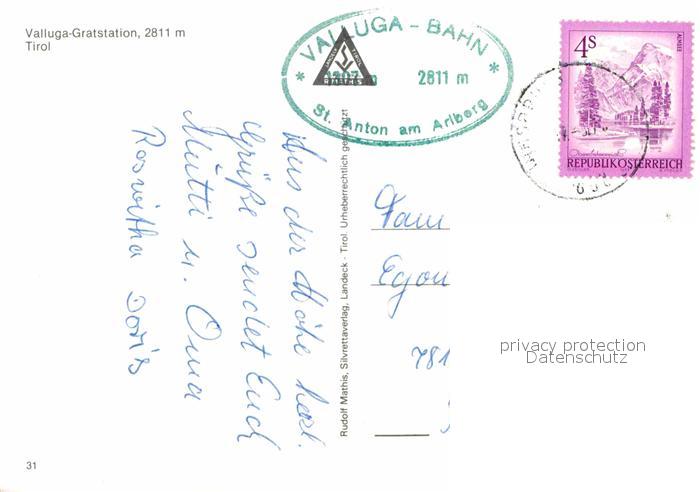 Valluga-Gratstation, 2811 m
Tirol
VALLUGA - BAHN
2811 m
St. Anton am Arlberg
4S
ALMSEE
REPUBLIK ÖSTERREICH
Aus der Höhe herzl.
Grüße sendet Euch
Mutti u. Oma
Roswitha Doris
Rudolf Mathis, Silvrettaverlag, Landeck - Tirol. Urheberrechtlich geschützt
Fam
Egon
781
privacy protection
Datenschutz
31